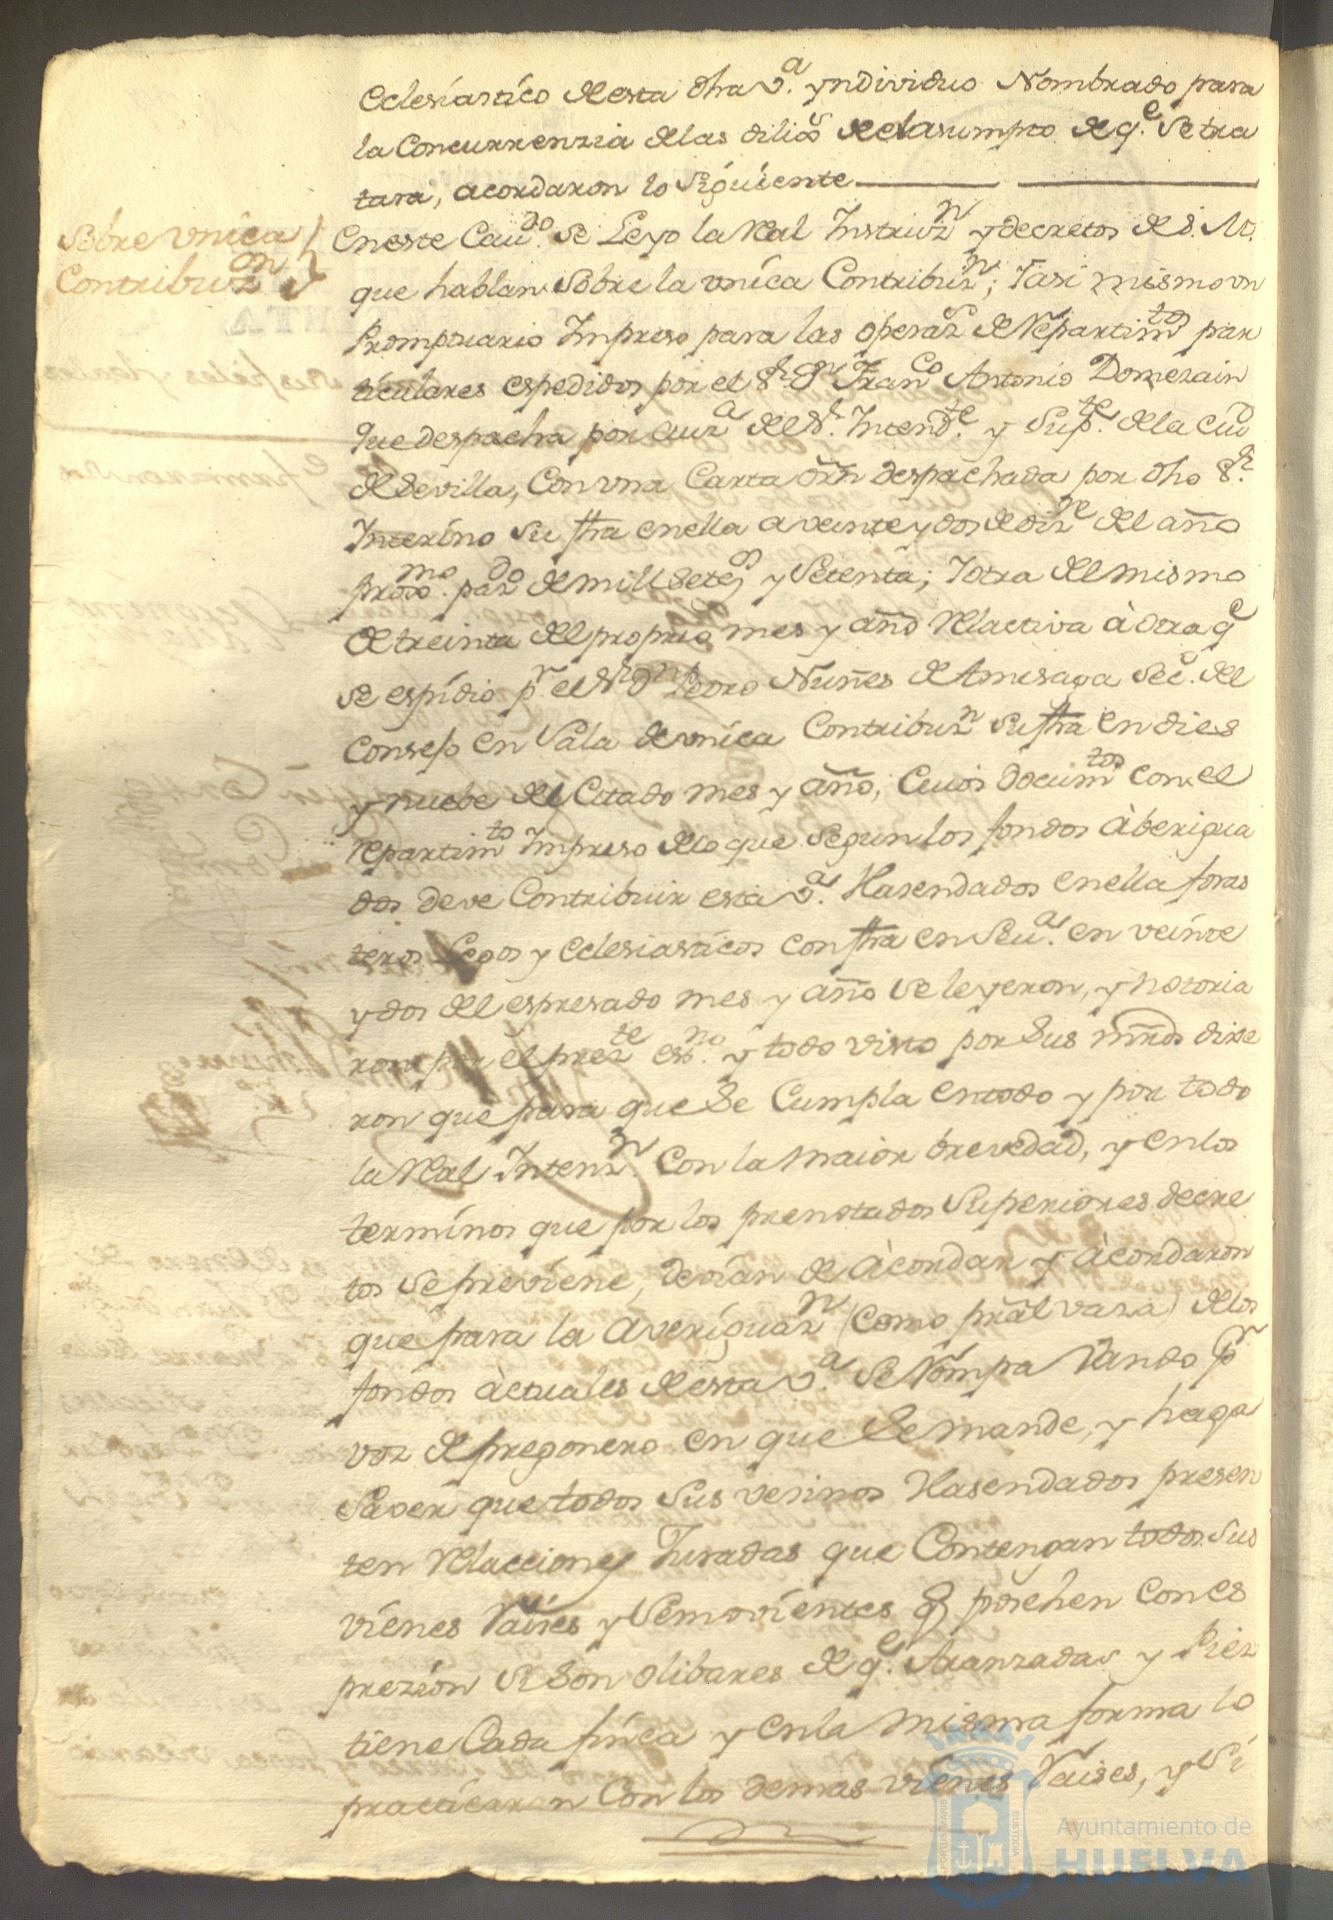 Eclesiastico de esta dha v.ª yndividuo Nombrado para
la Concurrenzia de las dilix.s de el asumpto de q.e Se tra
tara, acordaron lo Siguiente
Sobre vnica
Contribuz.on
En este Cau.do Se Leyo la Real Instruz.n y decretos de S. M.
que hablan Sobre la vnica Contribuz.n; Y asi mismo un
Promptuario Impreso para las operaz.s de Repartim.tos par
ticulares espedidos por el S.r D.n Fran.co Antonio Domezain
que despacha por auz.a de el S.r Intend.te y Sup.te de la Ciu.d
de Sevilla, Con vna Carta orñ despachada por dho S.r
Interino su fha en ella a veinte y dos de diz.re de el año
proxo.mo paz.do de mill Setez.os y Setenta; Y otra de el mismo
de treinta de el proprio mes y año Relactiva à otra q.e
se espidio p.r el S.r D.n Pedro Nuñes de Amesaga Sec.o de el
Consejo en Sala de vnica Contribuz.n su fha en dies
y nuebe de el Citado mes y año, Cuios Docum.tos con el
Repartim.to Impreso de lo que Segun los fondos àberigua
dos deve Contribuir esta v.ª Hasendados en ella foras
teros Legos y eclesiasticos con fha en Seu.ª en veinte
y dos de el espresado mes y año se leyeron, y notoria
ron por el prez.te esb.no y todo visto por Sus mrds dixe
ron que para que Se Cumpla en todo y por todo
la Real Intenz.n Con la maior brevedad, y en los
terminos que por los prenotados Superiores decre
tos Se previene, devian de àcordar y àcordaron
que para la averiguaz.n (como pral vaza) de los
fondos àctuales de esta v.ª Se Rompa Vando p.r
voz de pregonero en que Se mande, y haga
Saver que todos sus vesinos Hasendados presen
ten Relacciones Juradas que Contengan todos Sus
vienes Raises y Semovientes q posehen con es
prezion si Son olibares de q.e Aranzadas y Piez
tiene Cada finca y en la misma forma lo
practicaran Con los demas vienes Raises, y Si
Ayuntamiento de
HUELVA